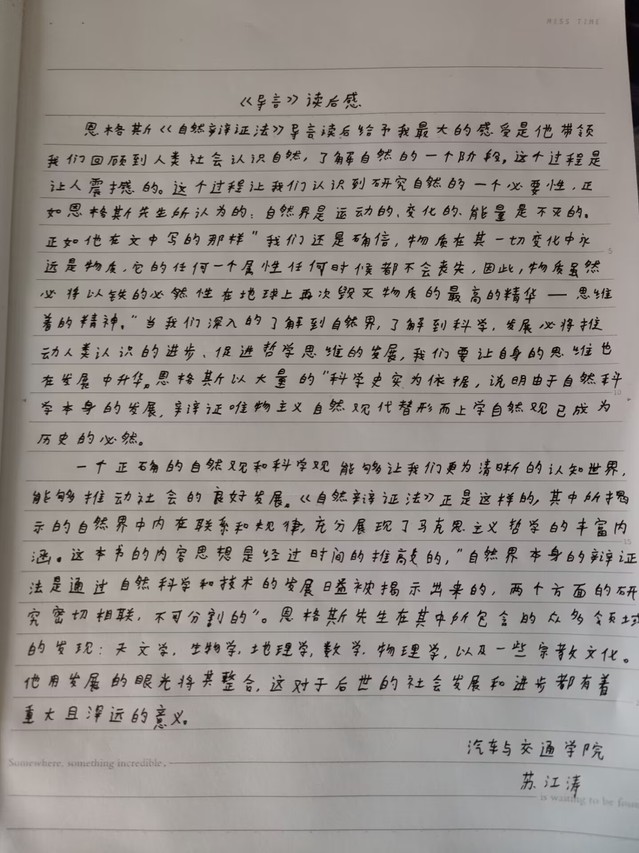 MUSE TIME
《导言》读后感
恩格斯《自然辩证法》导言读后给予我最大的感受是他带领
我们回顾到人类社会认识自然,了解自然的一个阶段,这个过程是
让人震撼的。这个过程让我们认识到研究自然的一个必要性,正
如恩格斯先生所认为的:自然界是运动的、变化的、能量是不灭的。
正如他在文中写的那样"我们还是确信,物质在其一切变化中永
远是物质,它的任何一个属性任何时候都不会丧失,因此,物质虽然
必将以铁的必然性在地球上再次毁灭物质的最高的精华——思维
着的精神。"当我们深入的了解到自然界,了解到科学,发展必将推
动人类认识的进步、促进哲学思维的发展,我们要让自身的思维也
在发展中升华。恩格斯以大量的"科学史实为依据,说明由于自然科
学本身的发展,辩证唯物主义自然观代替形而上学自然观已成为
历史的必然。
一个正确的自然观和科学观能够让我们更为清晰的认知世界,
能够推动社会的良好发展。《自然辩证法》正是这样的,其中所揭
示的自然界中内在联系和规律,充分展现了马克思主义哲学的丰富内
涵。这本书的内容思想是经过时间的推敲的,"自然界本身的辩证
法是通过自然科学和技术的发展日益被揭示出来的,两个方面的研
究密切相联,不可分割的"。恩格斯先生在其中所包含的众多领域
的发现:天文学,生物学,地理学,数学,物理学,以及一些宗教文化。
他用发展的眼光将其整合,这对于后世的社会发展和进步都有着
重大且深远的意义。
汽车与交通学院
苏江涛
Somewhere, something incredible,
is waiting to be